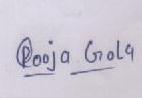 Pooja Gola